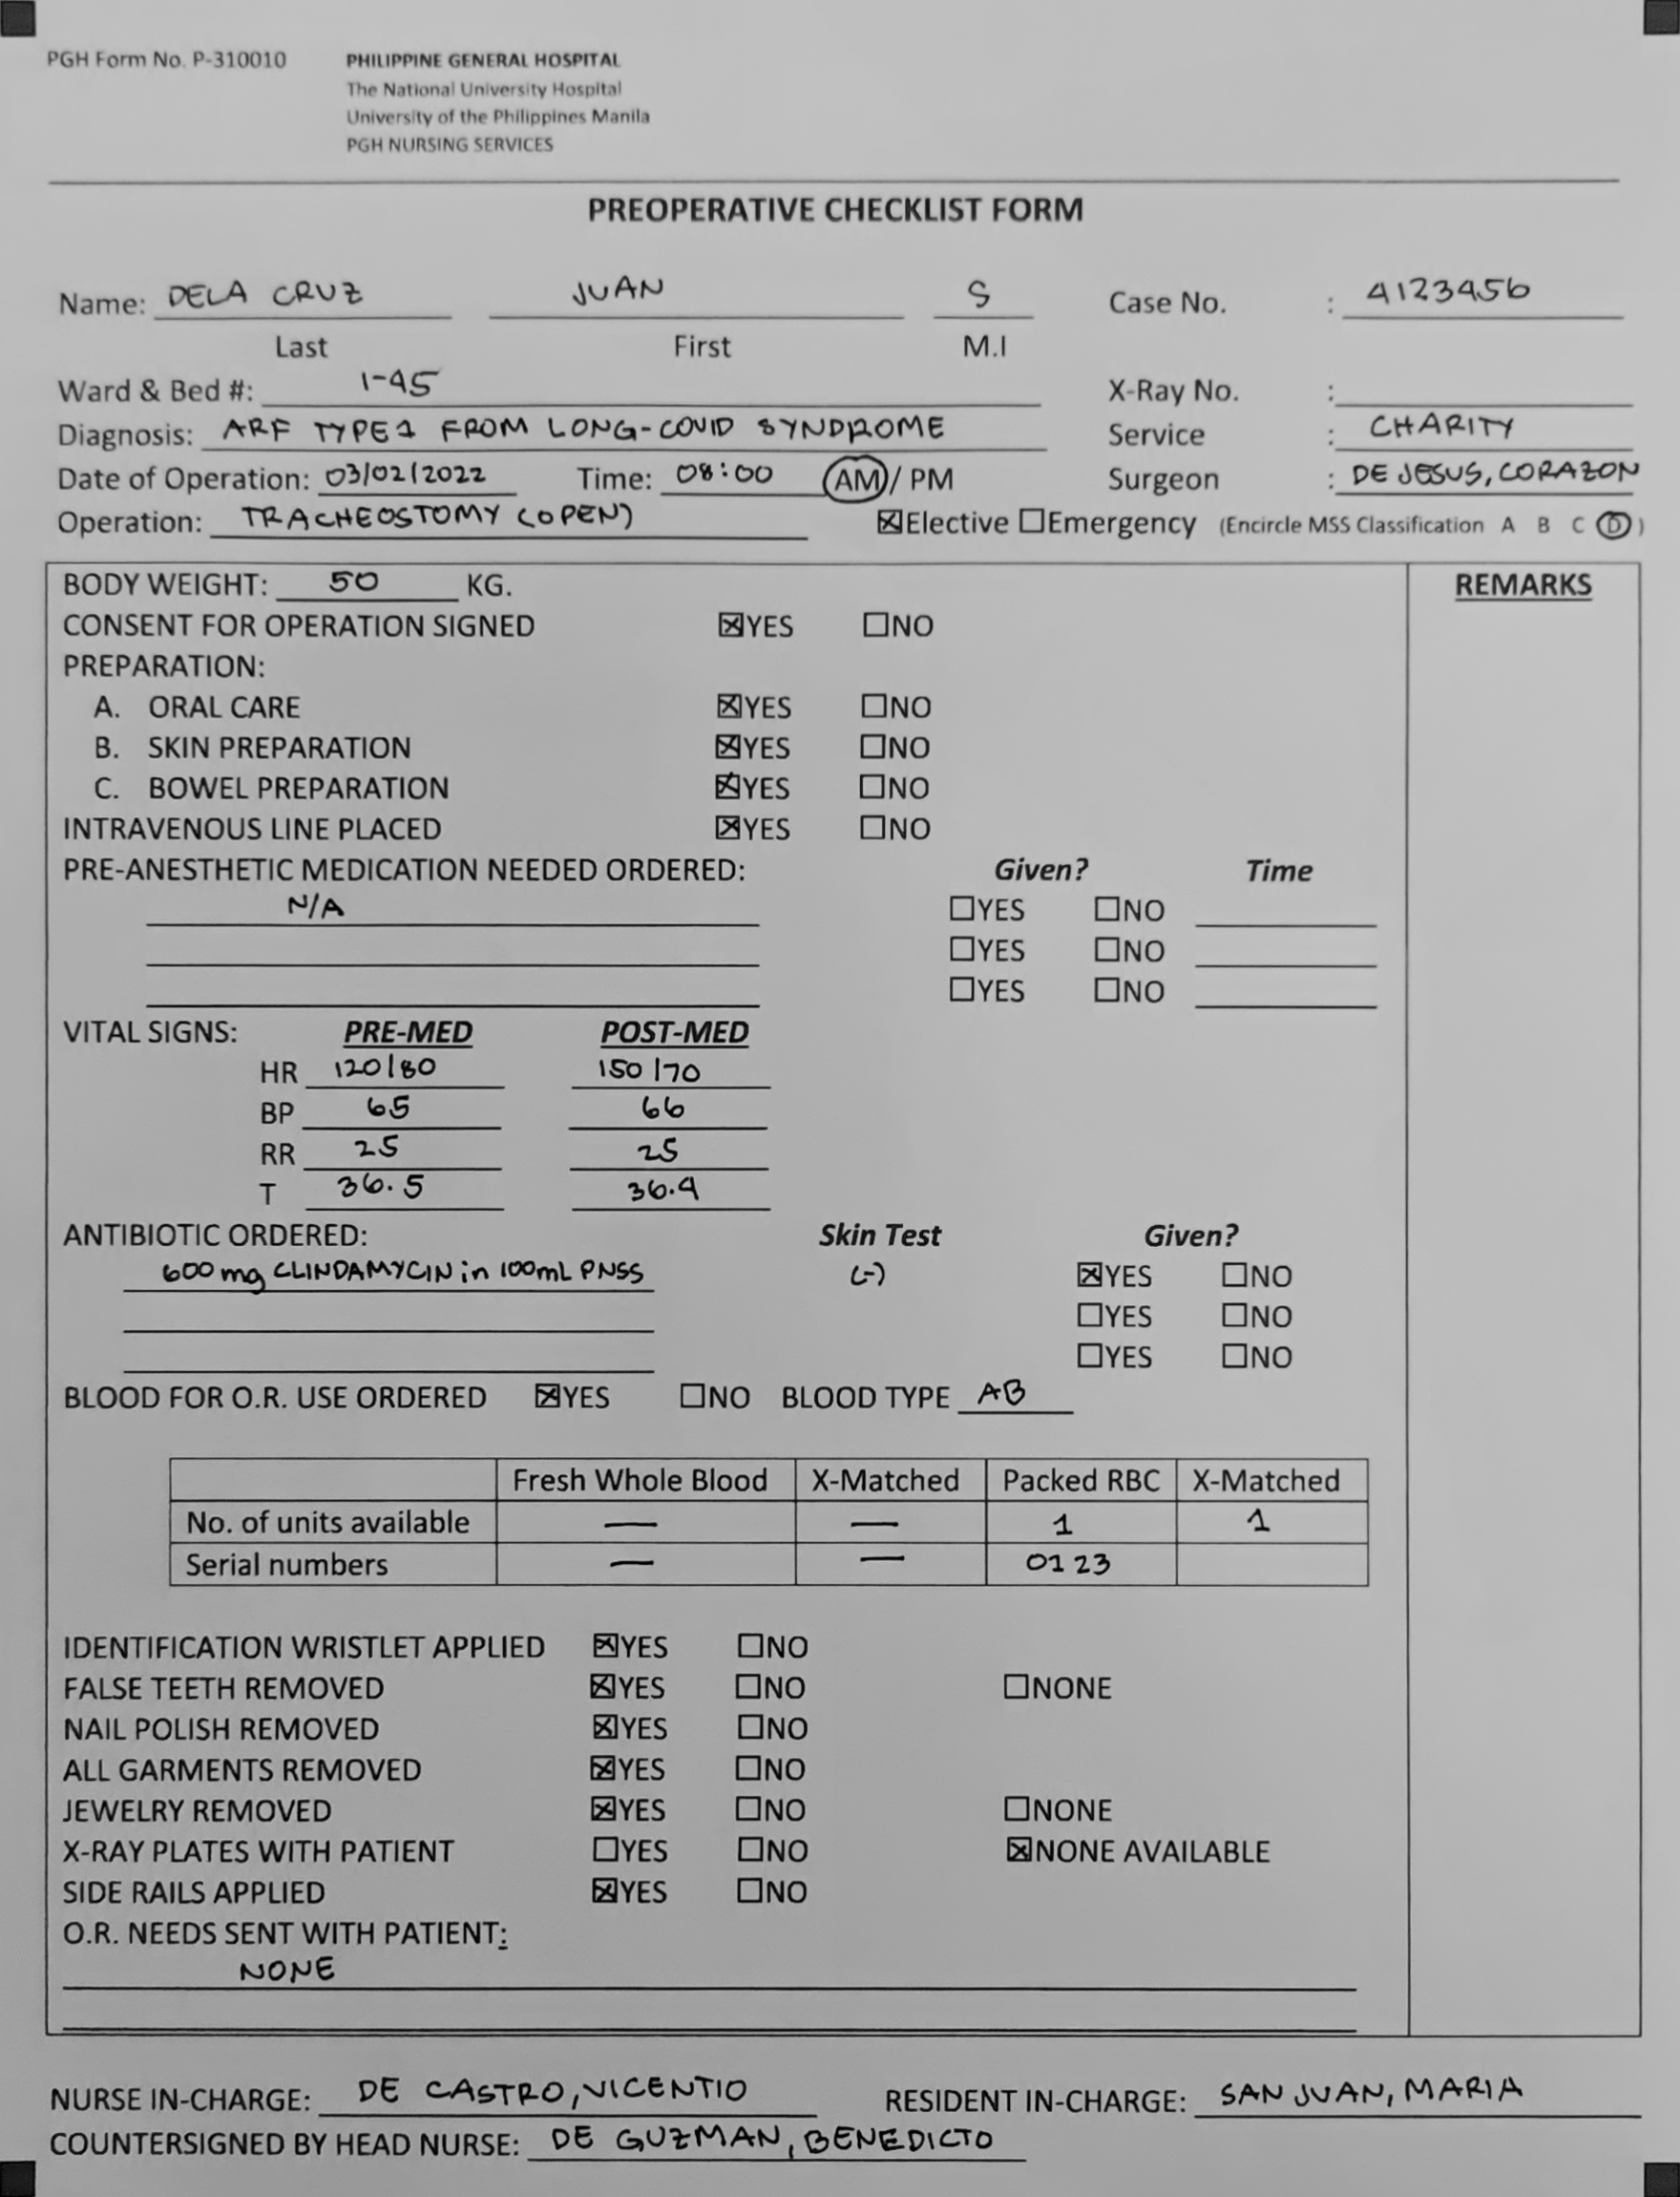 PGH Form No. P-310010 PHILIPPINE GENERAL HOSPITAL
The National University Hospital
University of the Philippines Manila
PGH NURSING SERVICES
PREOPERATIVE CHECKLIST FORM
Name: DELA CRUZ JUAN S Case No. : 4123456
Last First M.I
Ward & Bed #: 1-45 X-Ray No. :
Diagnosis: ARF TYPE 1 FROM LONG-COVID SYNDROME Service : CHARITY
Date of Operation: 03/02/2022 Time: 08:00 AM / PM Surgeon : DE JESUS, CORAZON
Operation: TRACHEOSTOMY (OPEN) ☒Elective ☐Emergency (Encircle MSS Classification A B C D )
BODY WEIGHT: 50 KG. REMARKS
CONSENT FOR OPERATION SIGNED ☒YES ☐NO
PREPARATION:
A. ORAL CARE ☒YES ☐NO
B. SKIN PREPARATION ☒YES ☐NO
C. BOWEL PREPARATION ☒YES ☐NO
INTRAVENOUS LINE PLACED ☒YES ☐NO
PRE-ANESTHETIC MEDICATION NEEDED ORDERED: Given? Time
N/A ☐YES ☐NO
☐YES ☐NO
☐YES ☐NO
VITAL SIGNS: PRE-MED POST-MED
HR 120/80 150/70
BP 65 66
RR 25 25
T 36.5 36.4
ANTIBIOTIC ORDERED: Skin Test Given?
600 mg CLINDAMYCIN in 100mL PNSS (-) ☒YES ☐NO
☐YES ☐NO
☐YES ☐NO
BLOOD FOR O.R. USE ORDERED ☒YES ☐NO BLOOD TYPE AB
Fresh Whole Blood X-Matched Packed RBC X-Matched
No. of units available — — 1 1
Serial numbers — — 0123
IDENTIFICATION WRISTLET APPLIED ☒YES ☐NO
FALSE TEETH REMOVED ☒YES ☐NO ☐NONE
NAIL POLISH REMOVED ☒YES ☐NO
ALL GARMENTS REMOVED ☒YES ☐NO
JEWELRY REMOVED ☒YES ☐NO ☐NONE
X-RAY PLATES WITH PATIENT ☐YES ☐NO ☒NONE AVAILABLE
SIDE RAILS APPLIED ☒YES ☐NO
O.R. NEEDS SENT WITH PATIENT:
NONE
NURSE IN-CHARGE: DE CASTRO, VICENTIO RESIDENT IN-CHARGE: SAN JUAN, MARIA
COUNTERSIGNED BY HEAD NURSE: DE GUZMAN, BENEDICTO